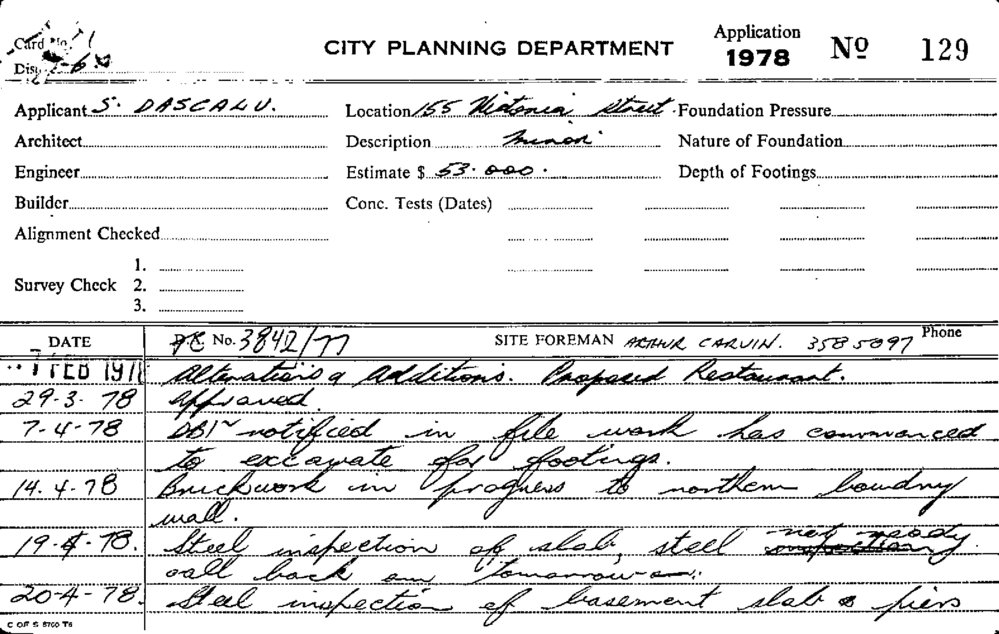 Card No.
CITY PLANNING DEPARTMENT
Application
1978 Nº 129
Applicant S. DASCALU. Location 155 Victoria Street. Foundation Pressure
Architect Description minor Nature of Foundation
Engineer Estimate $ 53.000. Depth of Footings
Builder Conc. Tests (Dates)
Alignment Checked
1.
Survey Check 2.
3.
DATE No. 3842/77 SITE FOREMAN ARTHUR CARVIN. 358 5097 Phone
FEB 197 Alterations & Additions. Proposed Restaurant.
29-3-78 Approved.
7-4-78 notified in file work has commanced
to excavate for footings.
14.4.78 Brickwork in progress to northern boudry
wall.
19-4-78. Steel inspection of slab, steel not ready
call back am tomorrow
20-4-78. Steel inspection of basement slab & piers
C OF S 8700 T6